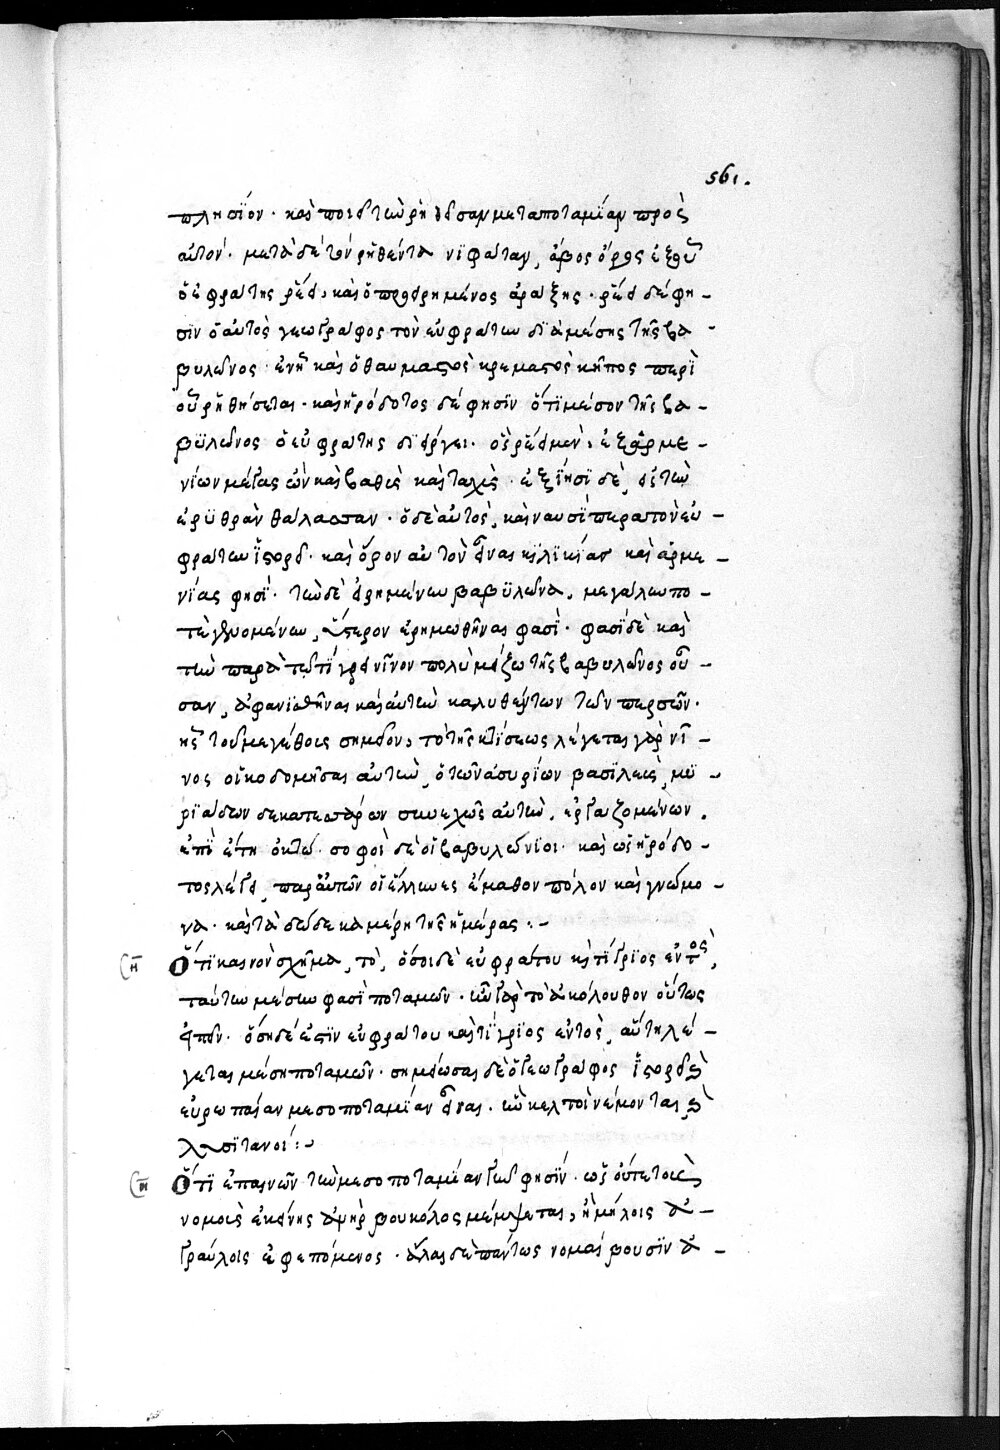 561.
πλησίον. καὶ ποιεῖ τὴν ῥηθεῖσαν μεταποταμίαν πρὸς
αὐτόν. μετὰ δὲ τὸν ῥηθέντα νιφάταν, ἄβος ὄρος ἐξ οὗ
ὁ εὐφράτης ῥέει, καὶ ὁ προειρημένος ἀράξης. ῥέει δέ φη-
σιν ὁ αὐτὸς γεωγράφος τὸν εὐφράτην διὰ μέσης τῆς βα-
βυλῶνος. ἐν ᾗ καὶ ὁ θαυμαστὸς κρεμαστὸς κῆπος περὶ
οὗ ῥηθήσεται. καὶ ἡρόδοτος δέ φησιν ὅτι μέσον τῆς βα-
βυλῶνος ὁ εὐφράτης διείργει. ὃς ῥέει μὲν, ἐξ ἀρμε-
νίων μέγας ὢν καὶ βαθὺς καὶ ταχὺς. ἐξίησι δὲ, εἰς τὴν
ἐρυθρὰν θάλασσαν. ὁ δὲ αὐτὸς, καὶ ναυσὶ περατὸν εὐ-
φράτην ἱστορεῖ. καὶ ὅρον αὐτὸν εἶναι κιλικίας καὶ ἀρμε-
νίας φησί. τὴν δὲ εἰρημένην βαβυλῶνα, μεγάλην πο-
τὲ γενομένην, ὕστερον ἐρημωθῆναι φασί. φασὶ δὲ καὶ
τὴν παρὰ τῷ τίγρει νῖνον πολὺ μείζω τῆς βαβυλῶνος οὖ-
σαν, ἀφανισθῆναι καὶ αὐτὴν καλυθέντων τῶν περσῶν.
ἧς τοῦ μεγέθους σημεῖον, τὸ τῆς κτίσεως λέγεται γὰρ νῖ-
νος οἰκοδομῆσαι αὐτὴν, ὁ τῶν ἀσυρίων βασιλεὺς, μυ-
ριάδων δεκατεσσάρων συνεχῶς αὐτὴν, ἐργαζομένων,
ἐπὶ ἔτη ὀκτώ. σοφοὶ δὲ οἱ βαβυλώνιοι. καὶ ὡς ἡρόδο-
τος λέγει, παρ' αὐτῶν οἱ ἕλληνες ἔμαθον πόλον καὶ γνώμο-
να. καὶ τὰ δώδεκα μέρη τῆς ἡμέρας.
(ση Ὅτι καινὸν σχῆμα, τὸ, ὅσοι δὲ εὐφράτου καὶ τίγριος ἐντὸς,
ταύτην μέσην φασὶ ποταμῶν. ἦν γὰρ τὸ ἀκόλουθον οὕτως
εἰπεῖν. ὅση δέ ἐστιν εὐφράτου καὶ τίγριος ἐντὸς, αὕτη λέ-
γεται μέση ποταμῶν. σημείωσαι δὲ ὁ γεωγράφος ἱστορεῖ
εὐρωπαίαν μεσοποταμίαν εἶναι. ἣν κελτοὶ νέμονται
λυσιτανοί:~
(ση Ὅτι ἐπαινῶν τὴν μεσοποταμίαν γῆν φησὶν. ὡς οὔτε τοὺς
νομοὺς ἐκείνης ἀνὴρ βουκόλος μέμψεται, ἢ μήλοις ἀ-
γραύλοις ἐφεπόμενος. ἄλας δὲ πάντως νομαὶ βουσὶν ἀ-